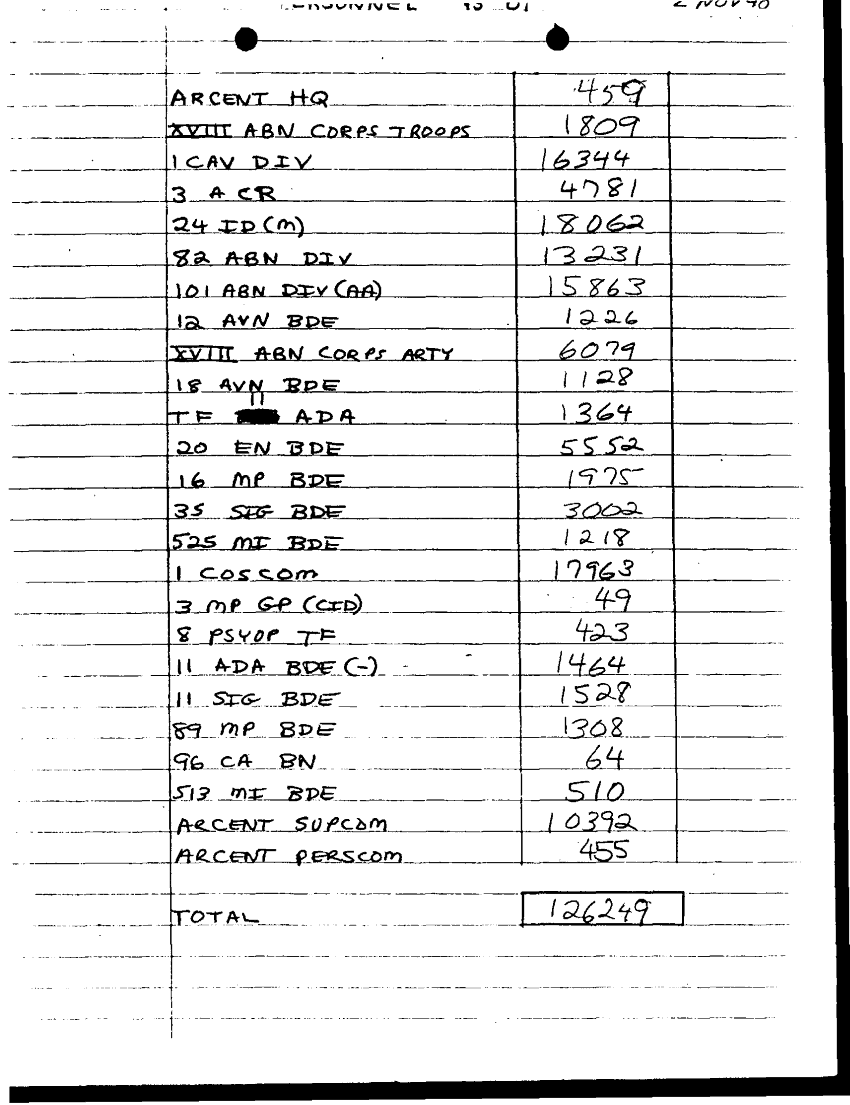 PERSONNEL AS OF 2 NOV 90
ARCENT HQ 459
XVIII ABN CORPS TROOPS 1809
1 CAV DIV 16344
3 ACR 4781
24 ID (M) 18062
82 ABN DIV 13231
101 ABN DIV (AA) 15863
12 AVN BDE 1226
XVIII ABN CORPS ARTY 6079
18 AVN BDE 1128
TF 11 ADA 1364
20 EN BDE 5552
16 MP BDE 1975
35 SIG BDE 3002
525 MI BDE 1218
1 COSCOM 17963
3 MP GP (CID) 49
8 PSYOP TF 423
11 ADA BDE (-) 1464
11 SIG BDE 1528
89 MP BDE 1308
96 CA BN 64
513 MI BDE 510
ARCENT SUPCOM 10392
ARCENT PERSCOM 455
TOTAL 126249